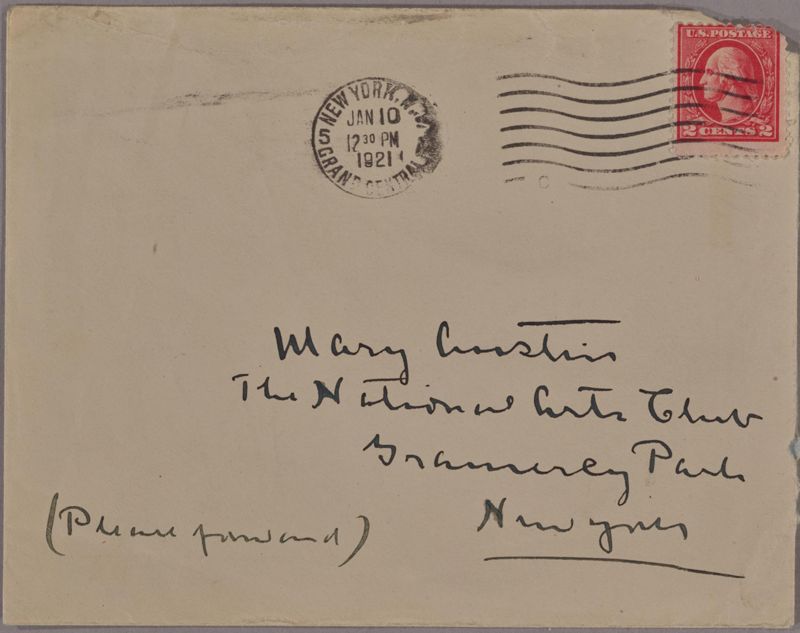 U.S. POSTAGE
2 CENTS 2
NEW YORK, N.Y.
JAN 10
12 30 PM
1921
5 GRAND CENTRAL
C
Mary Austin
The National Arts Club
Gramercy Park
New York
(Please forward)